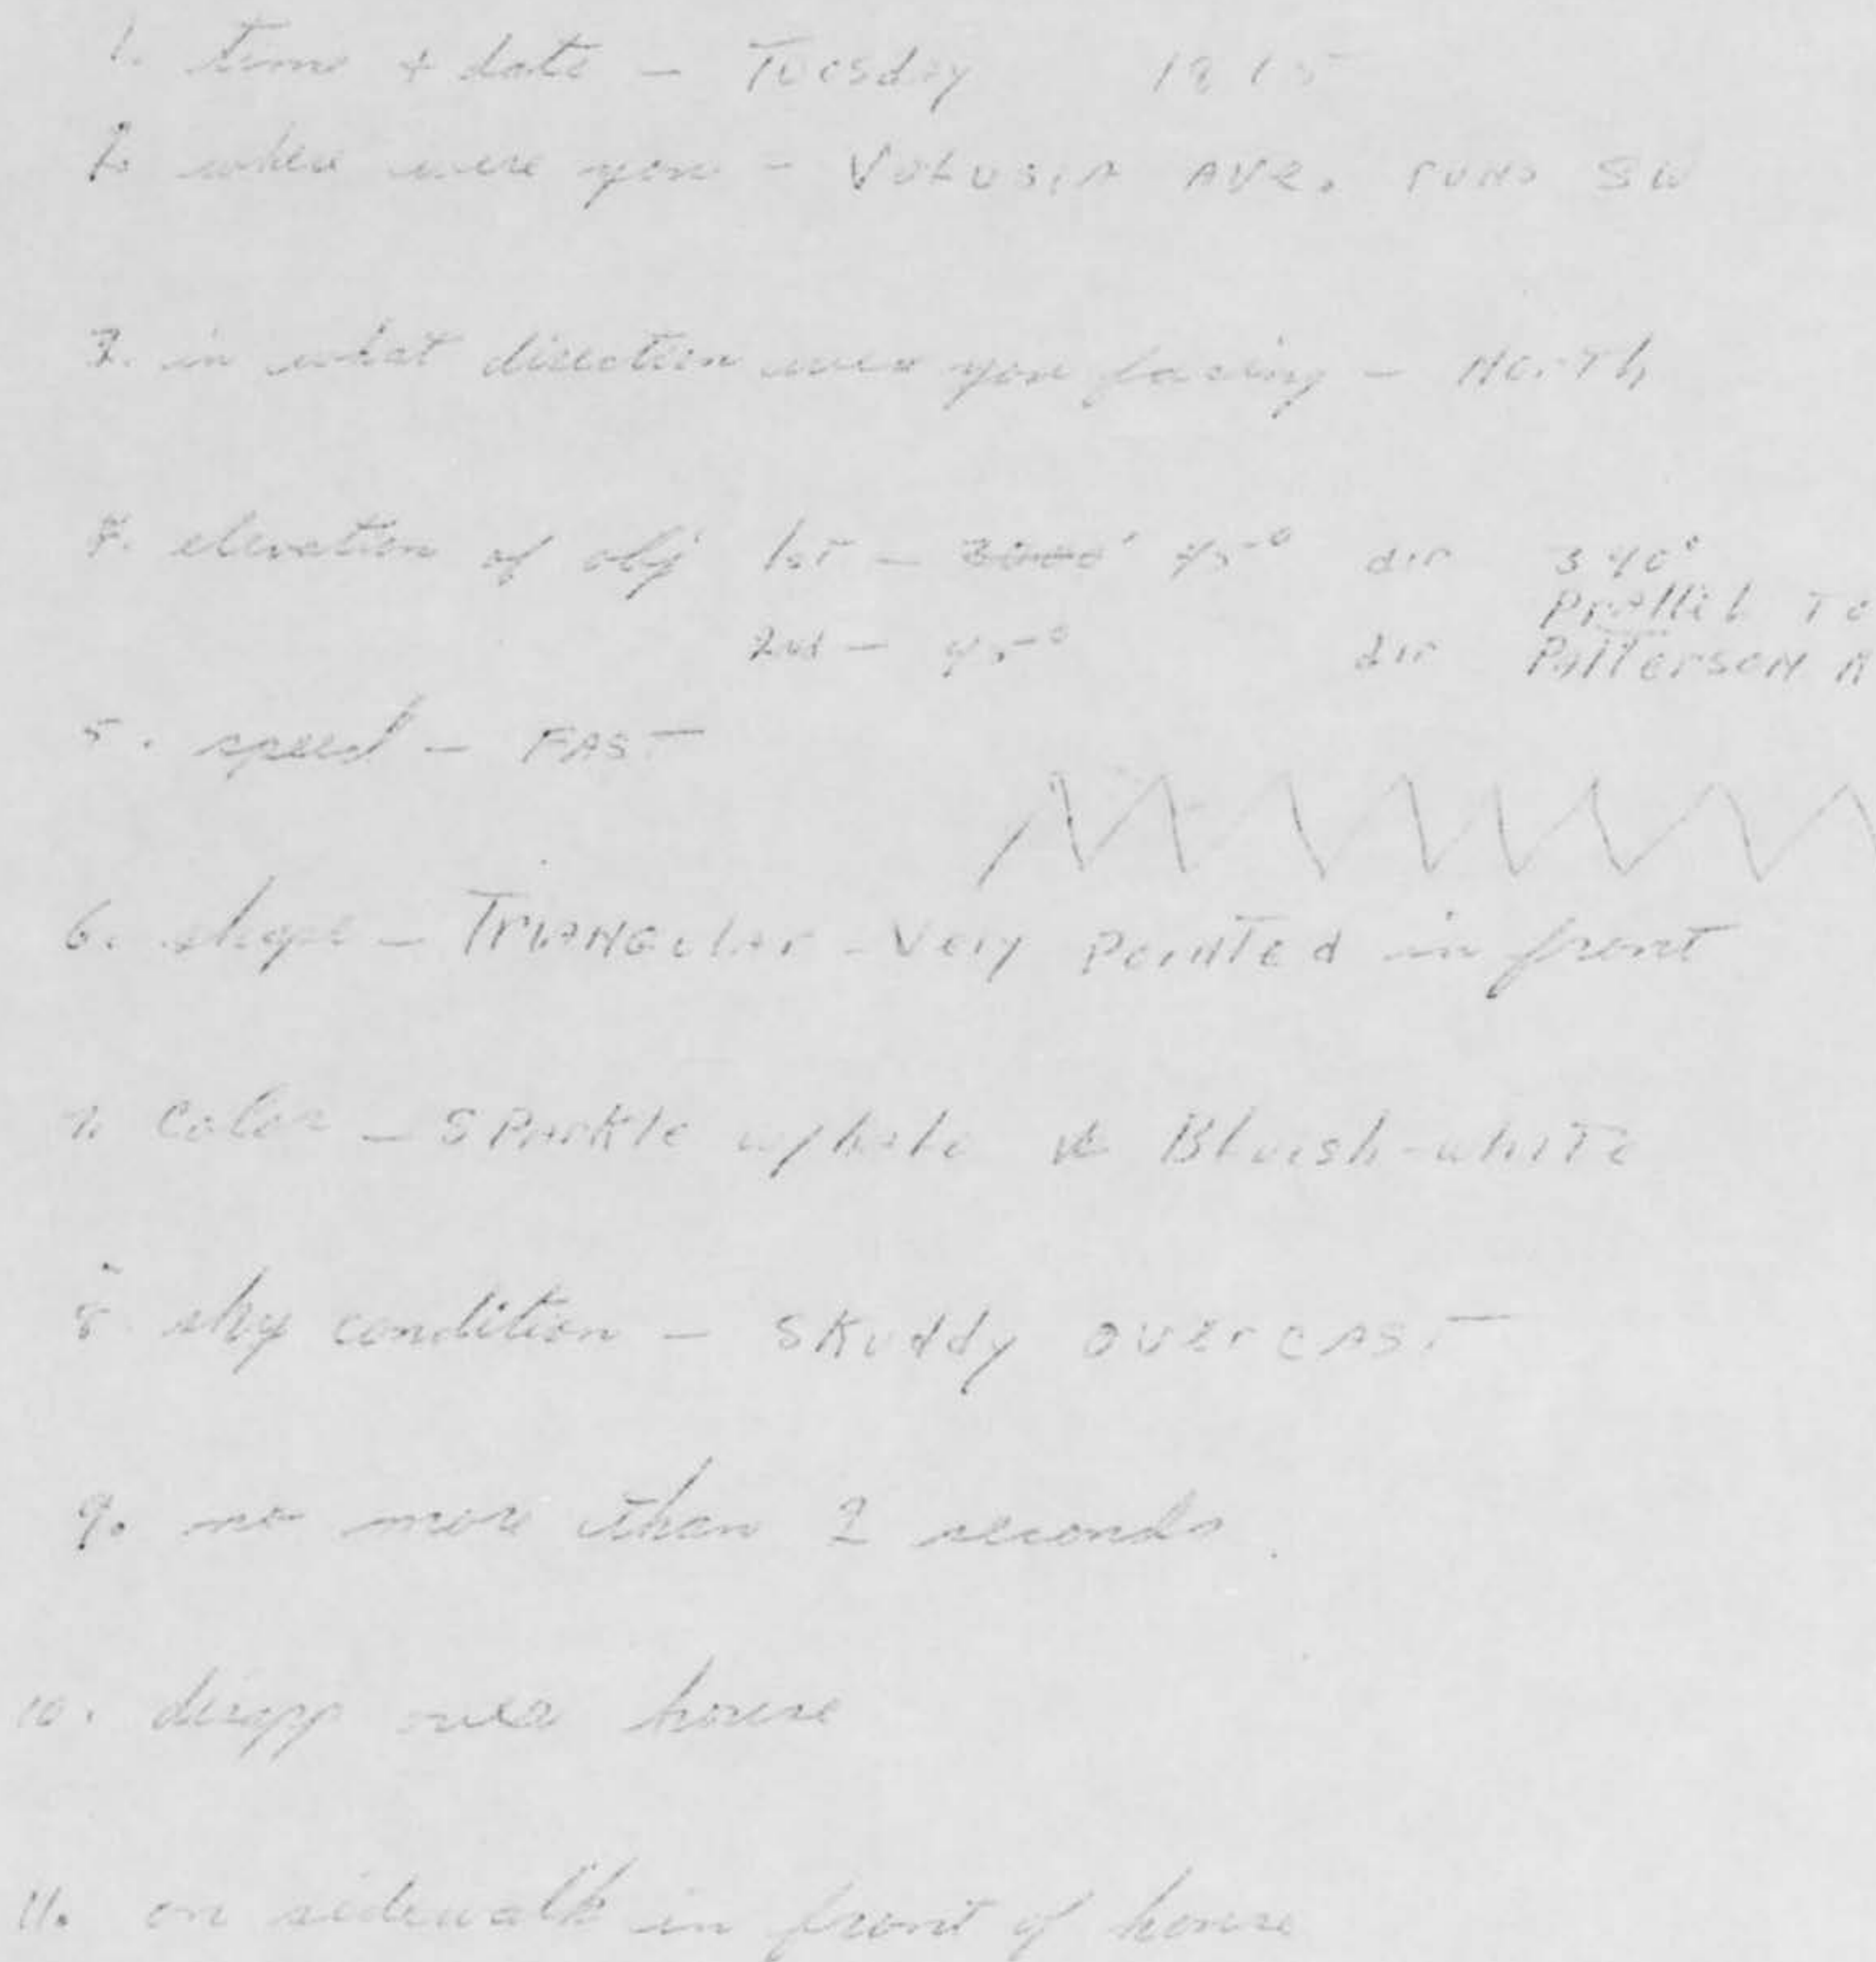 1. time + date - Tuesday 1815
2. where were you - Volusia Ave. runs SW
3. in what direction were you facing - North
4. elevation of obj 1st - 3000' 45° dir 340°
Prallel To
2nd - 45° dir Patterson A
5. speed - FAST
6. shape - Triangular - Very Pointed in front
7. Color - Sparkle w/halo Bluish-white
8. sky condition - Skuddy overcast
9. no more than 2 seconds.
10. disapp over house
11. on sidewalk in front of house